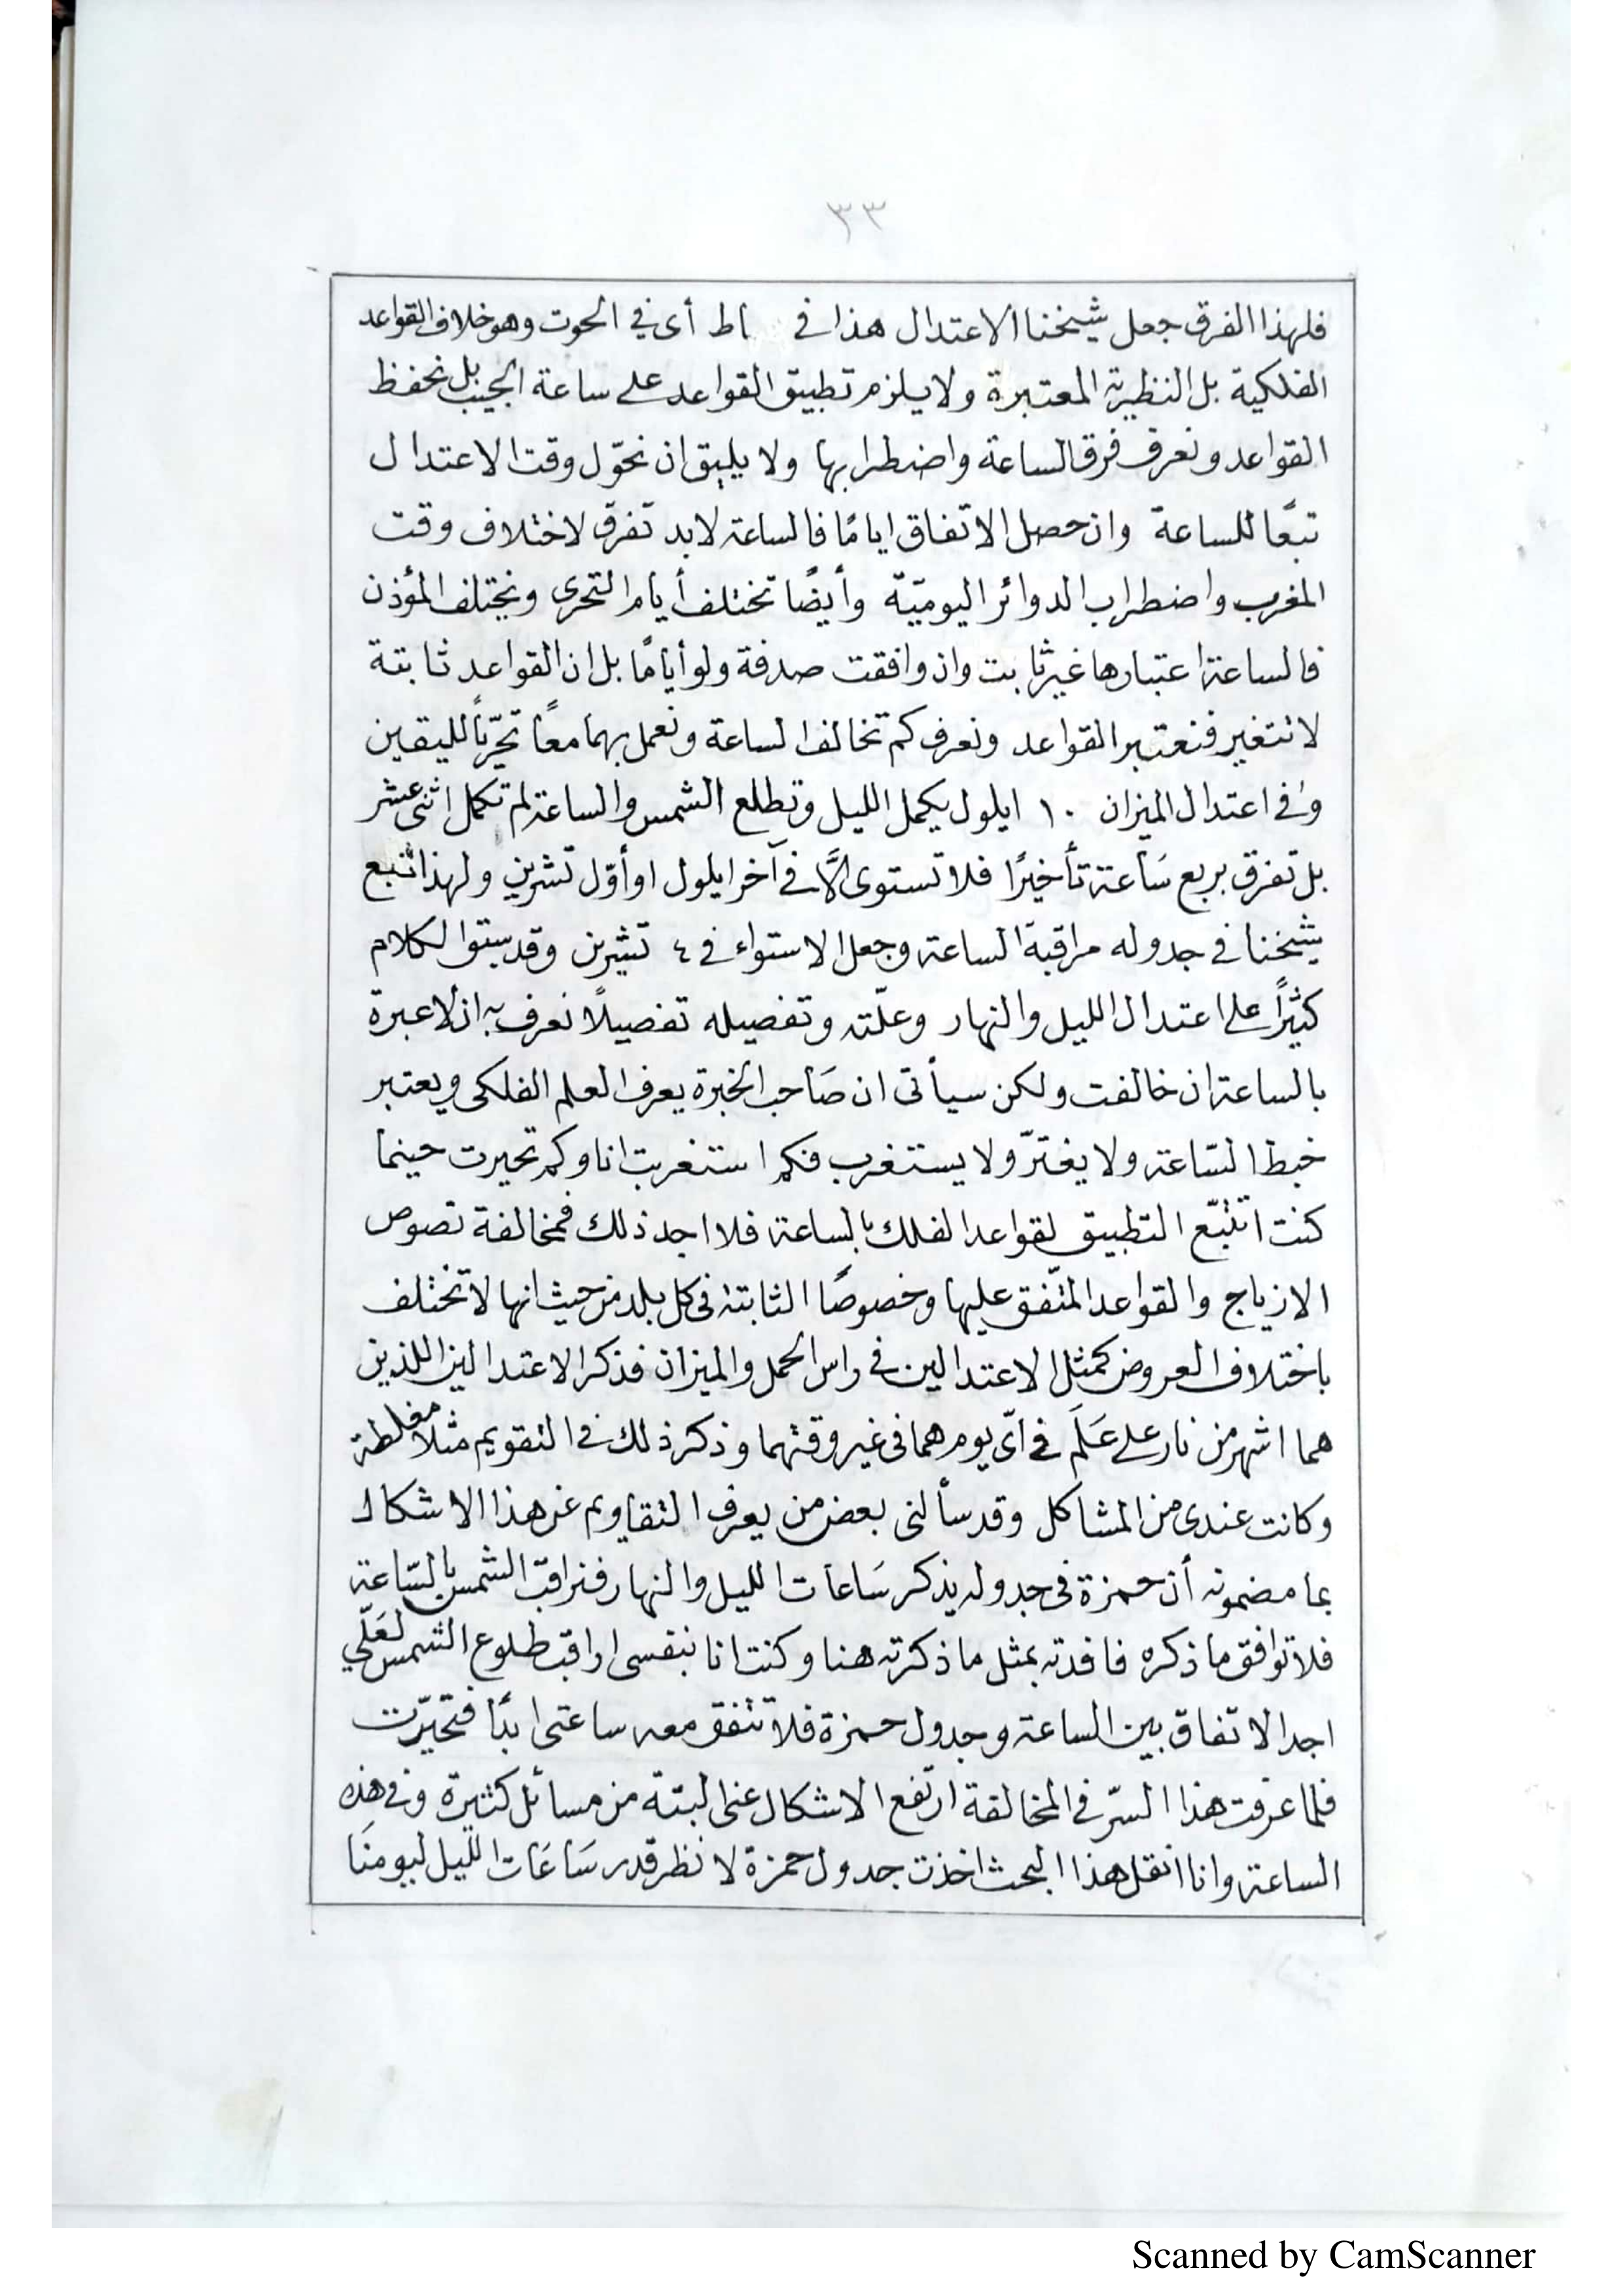 ٣٣
فلهذا الفرق جعل شيخنا الاعتدال هذا في اط أى في الحوت وهو خلاف القواعد
الفلكية بل النظرية المعتبرة ولا يلزم تطبيق القواعد على ساعة الجيب بل نحفظ
القواعد ونعرف فرق الساعة واضطرابها ولا يليق ان نحوّل وقت الاعتدال
تبعًا للساعة وان حصل الاتفاق ايامًا فالساعة لابد تفرق لاختلاف وقت
المغرب واضطراب الدوائر اليوميّة وأيضًا تختلف أيام التحرى ويختلف المؤذن
فالساعة اعتبارها غير ثابت وان وافقت صدفة ولو أيامًا بل ان القواعد ثابتة
لا تتغير فنعتبر القواعد ونعرف كم تخالف الساعة ونعمل بهما معًا تحرّيًا لليقين
وفي اعتدال الميزان ١٠ ايلول يكمل الليل وتطلع الشمس والساعة لم تكمل اثنى عشر
بل تفرق بربع سَاعة تأخيرًا فلا تستوى الّا في آخر ايلول او أوّل تشرين ولهذا تتبع
شيخنا في جدوله مراقبة الساعة وجعل الاستواء في ٤ تشرين وقد سبق الكلام
كثيرًا على اعتدال الليل والنهار وعلّته وتفصيله تفصيلًا نعرف به ان لا عبرة
بالساعة ان خالفت ولكن سيأتى ان صَاحب الخبرة يعرف العلم الفلكى ويعتبر
خبط السّاعة ولا يغترّ ولا يستغرب فكم استغربت انا وكم تحيرت حينما
كنت اتتبّع التطبيق لقواعد الفلك بالساعة فلا اجد ذلك فمخالفة نصوص
الازياج والقواعد المتّفق عليها وخصوصًا الثابتة فى كل بلد من حيث انها لا تختلف
باختلاف العروض كمثل الاعتدالين في راس الحمل والميزان فذكر الاعتدالين اللذين
هما اشهر من نار على عَلَم في اىّ يوم هما فى غير وقتهما وذكر ذلك في التقويم مثلا مغلطة
وكانت عندى من المشاكل وقد سألنى بعض من يعرف التقاويم عن هذا الاشكال
بما مضمونه أن حمزة فى جدوله يذكر سَاعات الليل والنهار فنراقب الشمس بالسّاعة
فلا توافق ما ذكره فافدته بمثل ما ذكرته هنا وكنت انا بنفسى اراقب طلوع الشمس لعَلّي
اجد الاتفاق بين الساعة وجدول حمزة فلا تتفق معه ساعتى ابدًا فتحيّرت
فلما عرفت هذا السرّ في المخالفة ارتفع الاشكال عنى البتة من مسائل كثيرة وفي هذه
الساعة وانا انقل هذا البحث اخذت جدول حمزة لانظر قدر سَاعَات الليل ليومنَا
Scanned by CamScanner